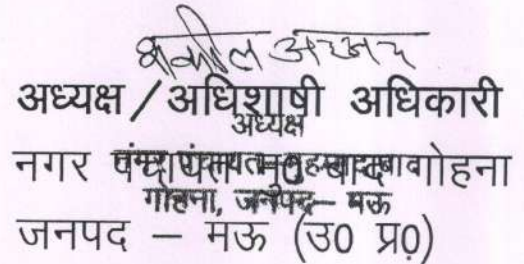 अध्यक्ष / अधिशाषी अधिकारी
अध्यक्ष
नगर पंचायत मु0बाद गोहना
गोहना, जनपद – मऊ
जनपद – मऊ (उ0 प्र0)